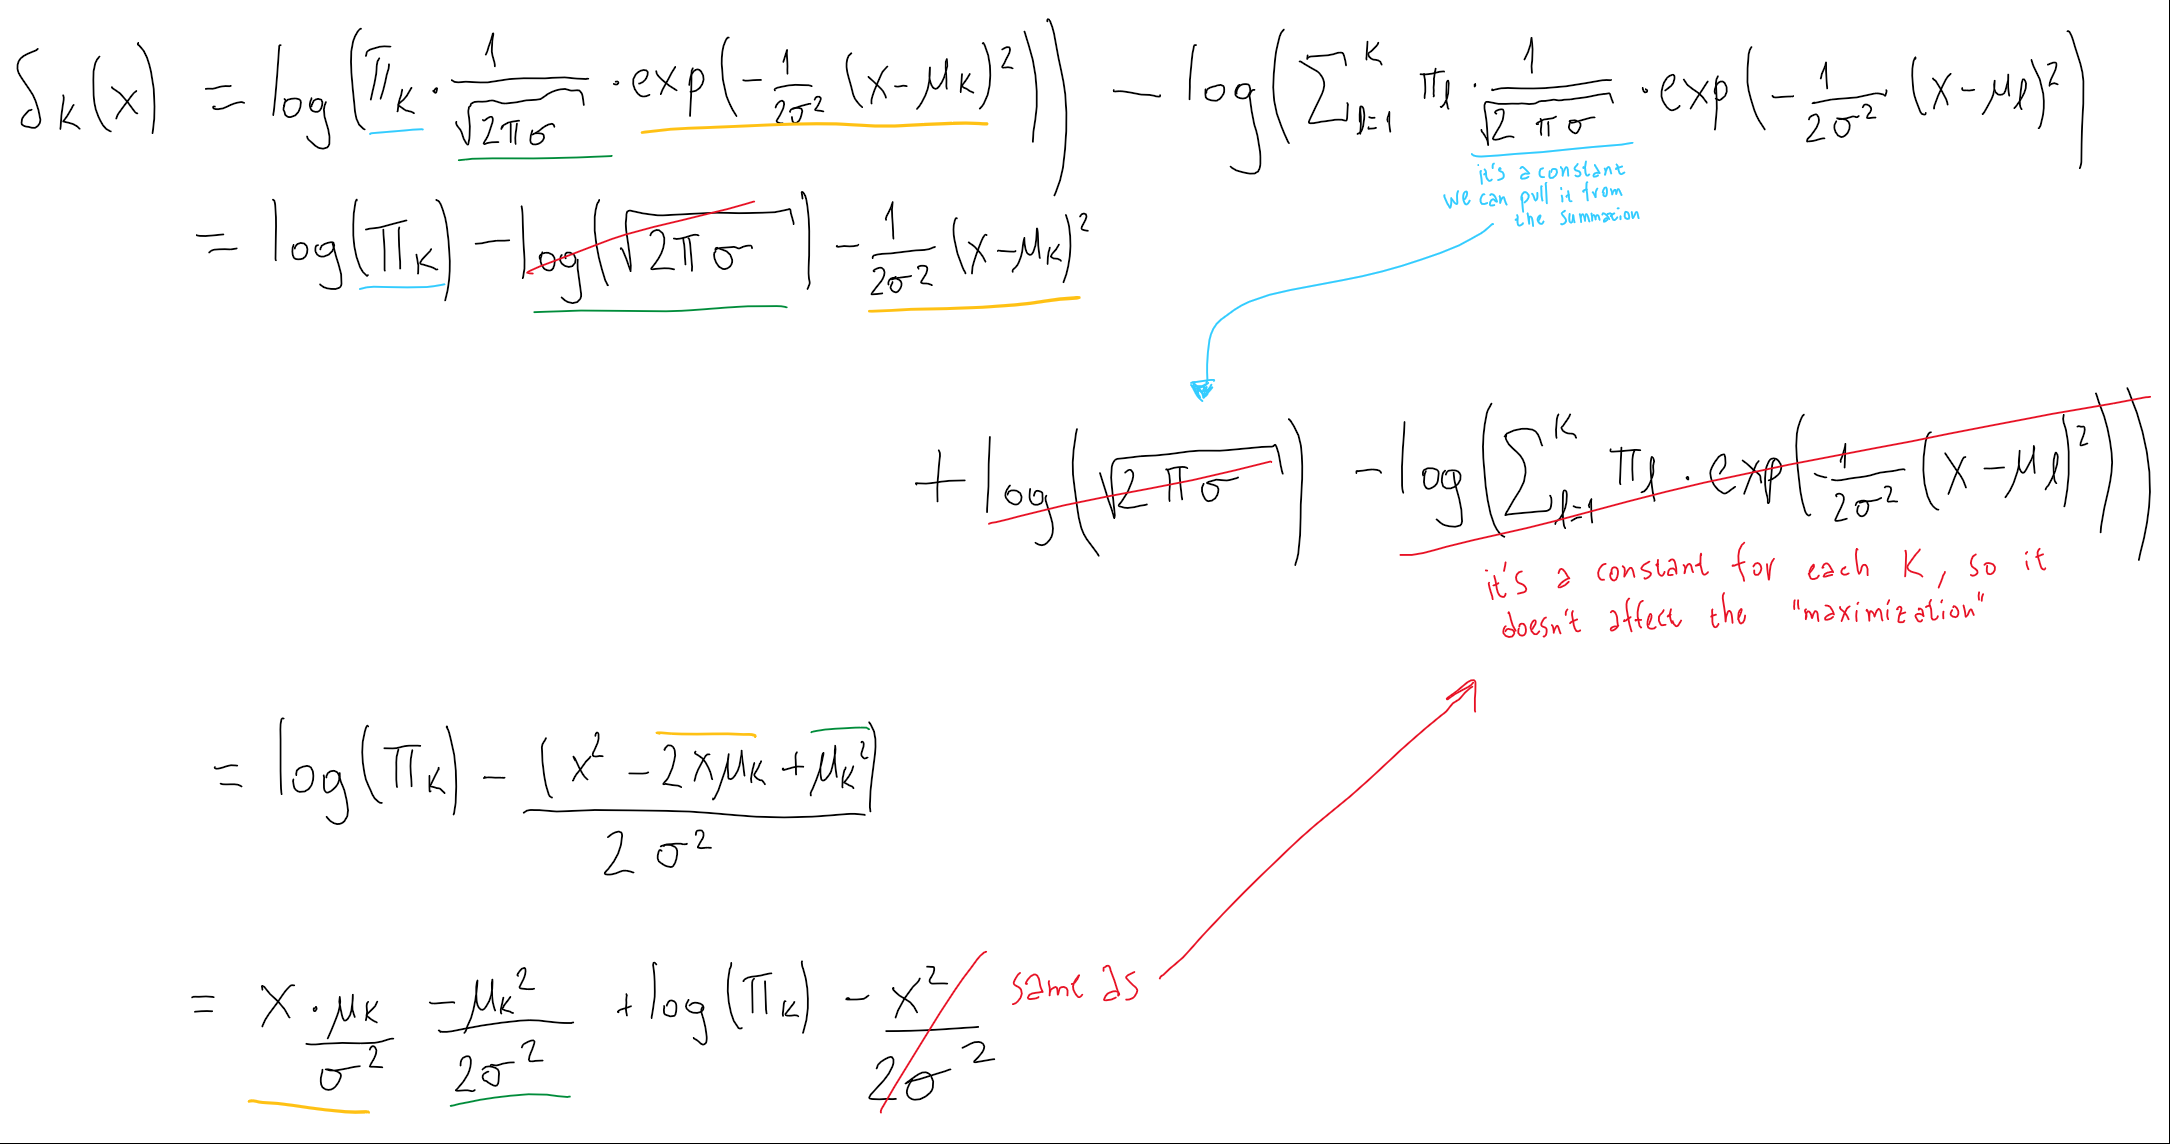 δ_k(x) = log(π_k · 1/√(2πσ) · exp(-1/2σ² (x-μ_k)²)) - log(∑_{l=1}^{K} π_l · 1/√(2πσ) · exp(-1/2σ² (x-μ_l)²)
it's a constant
we can pull it from
the summation
= log(π_k) - log(√(2πσ)) - 1/2σ² (x-μ_k)²
+ log(√(2πσ)) - log(∑_{l=1}^{K} π_l · exp(-1/2σ² (x-μ_l)²))
it's a constant for each K, so it
doesn't affect the "maximization"
= log(π_k) - (x² - 2xμ_k + μ_k²)/2σ²
= x · μ_k/σ² - μ_k²/2σ² + log(π_k) - x²/2σ² same as